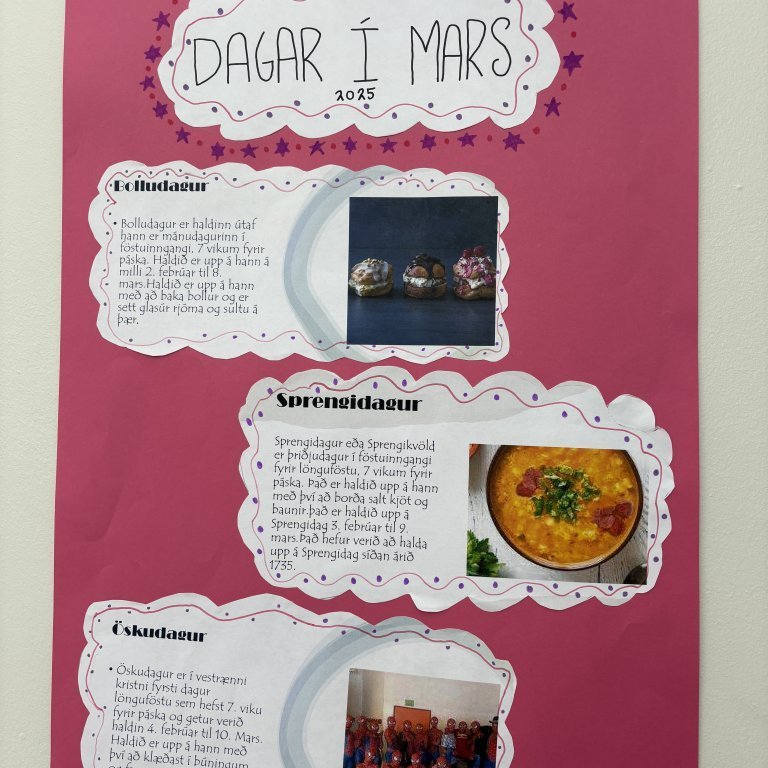 DAGAR Í MARS
2025
Bolludagur
• Bolludagur er haldinn útaf
hann er mánudagurinn í
föstuinngangi, 7 vikum fyrir
páska. Haldið er upp á hann á
milli 2. febrúar til 8.
mars.Haldið er upp á hann
með að baka bollur og er
sett glasúr rjóma og sultu á
þær.
Sprengidagur
Sprengidagur eða Sprengikvöld
er þriðjudagur í föstuinngangi
fyrir lönguföstu, 7 vikum fyrir
páska. Það er haldið upp á hann
með því að borða salt kjöt og
baunir.það er haldið upp á
Sprengidag 3. febrúar til 9.
mars.Það hefur verið að halda
upp á Sprengidag síðan árið
1735.
Öskudagur
• Öskudagur er í vestrænni
kristni fyrsti dagur
lönguföstu sem hefst 7. viku
fyrir páska og getur verið
haldin 4. febrúar til 10. Mars.
Haldið er upp á hann með
því að klæðast í búningum